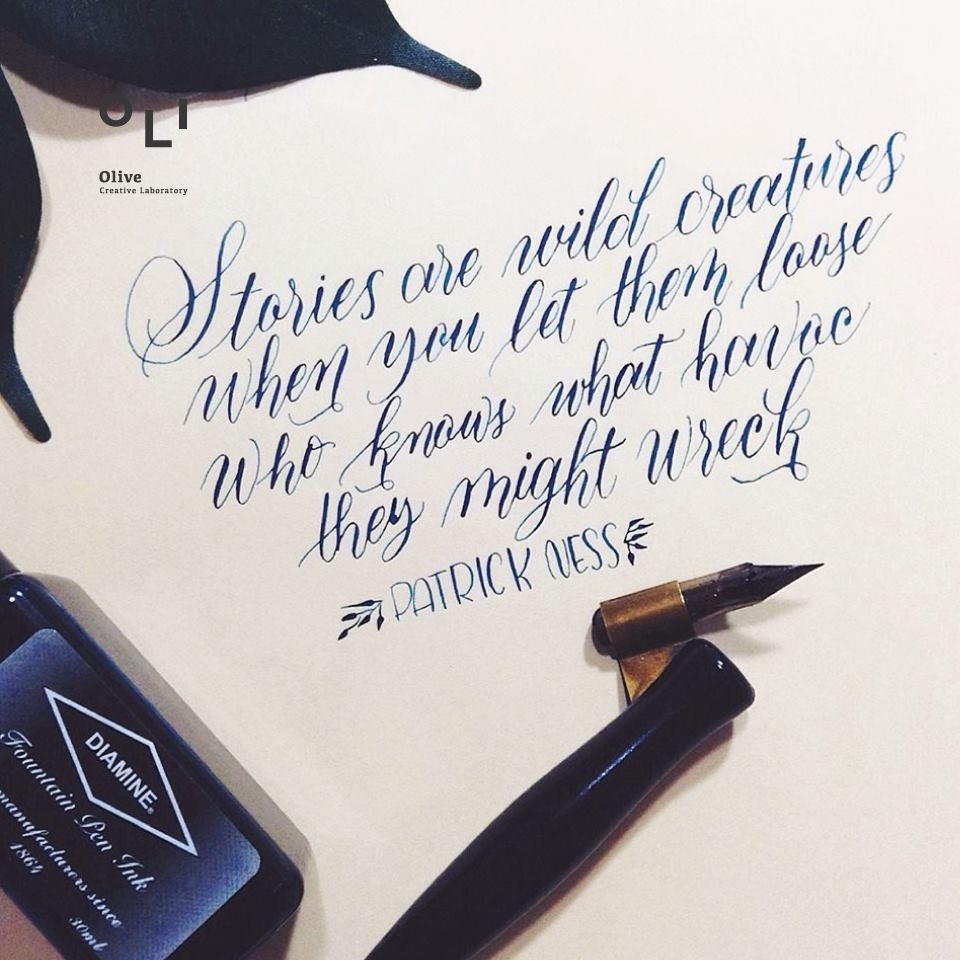 OLI
Olive
Creative Laboratory
Stories are wild creatures
when you let them loose
who knows what havoc
they might wreck
PATRICK NESS
DIAMINE®
Fountain Pen Ink
manufacturers since
1864
30ml